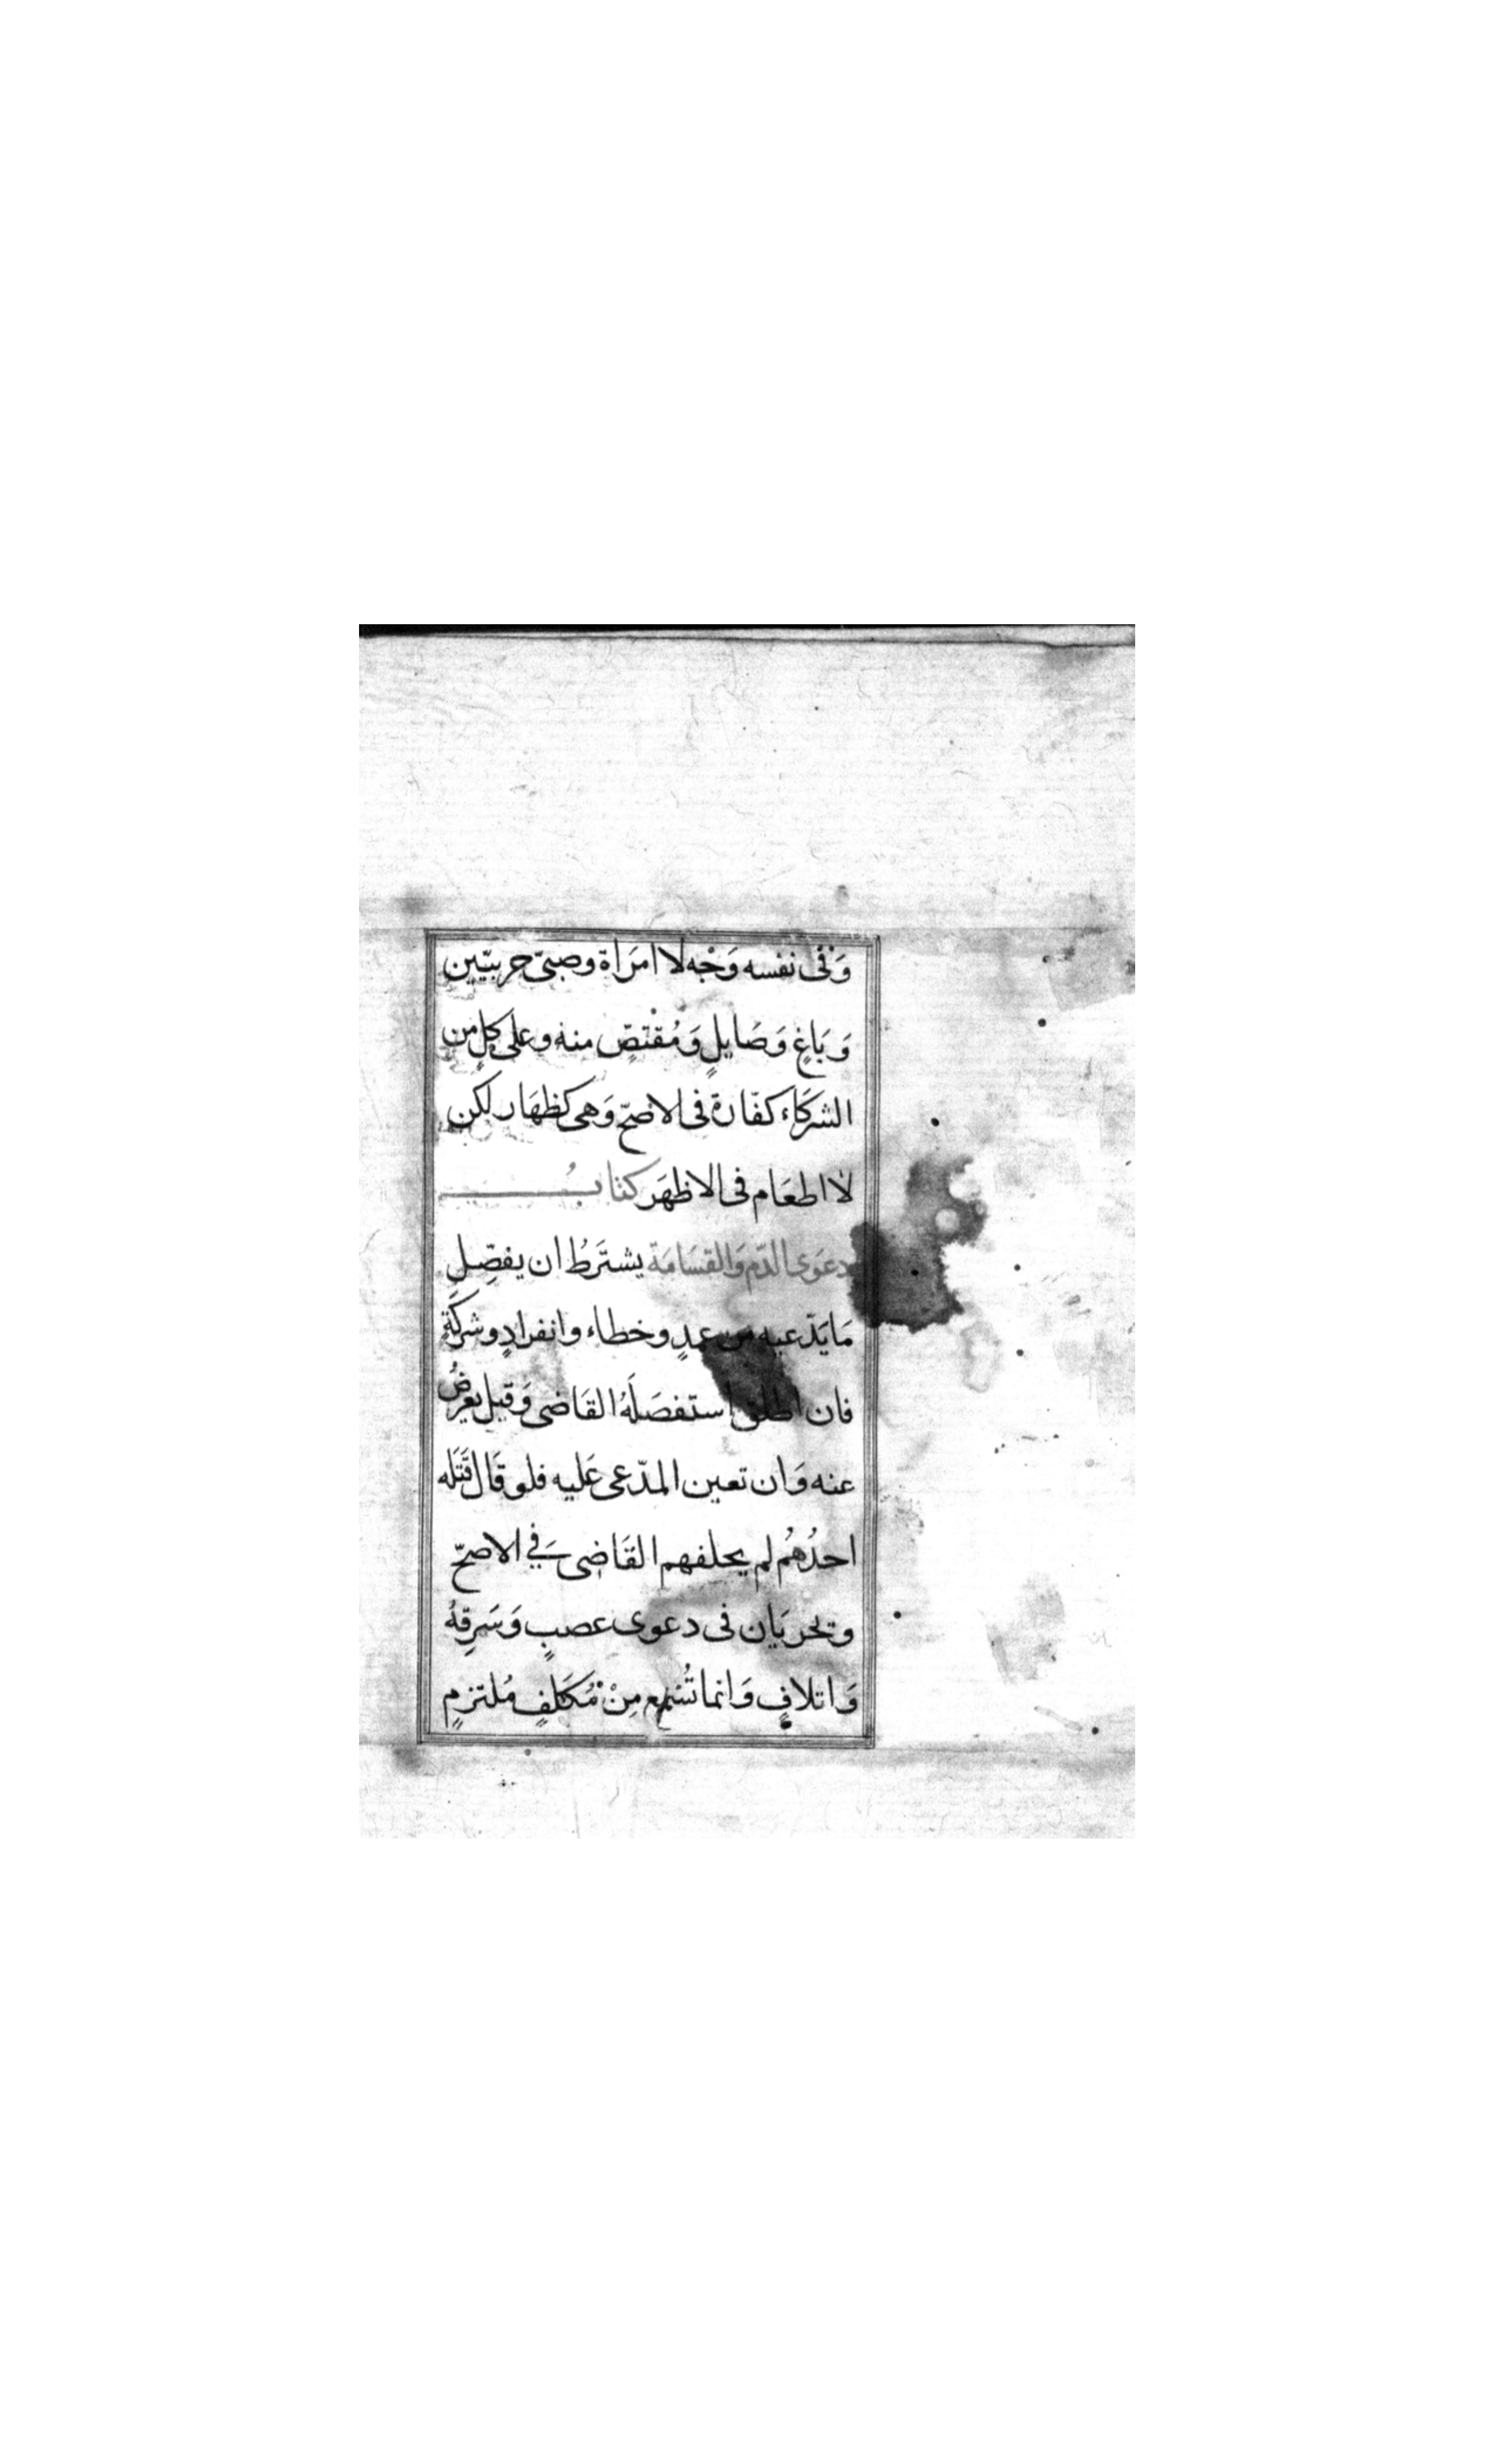 وَفى نفسه وَجْه لا امرَاة وصَبىّ حربيّين
وَ بَاغٍ وَصَايلٍ وَمُقْتَصٍّ منه وعلى كلٍ من
الشركَاء كفّارة فى الاصَحّ وَهى كظهَار لكن
لا اطعَام فى الاظهَر كتابُ
دعوَى الدّم وَالقسَامَة يشتَرطُ ان يفصِّل
مَا يَدّعيه من عمدٍ وخطاء وانفرادٍ وشركَةٍ
فان اطلق استفصَلَهُ القَاضى وَقيل يعرضُ
عنه وَان تعين المدّعى عَليه فلو قَال قَتَلَه
احدُهُم لم يحلفهم القَاضى فِي الاصحّ
وتجريَان فى دعوى غصبٍ وَسَرِقةٍ
وَاتلافٍ وَانما تُسْمع مِنْ مُكَلفٍ مُلتزمٍ